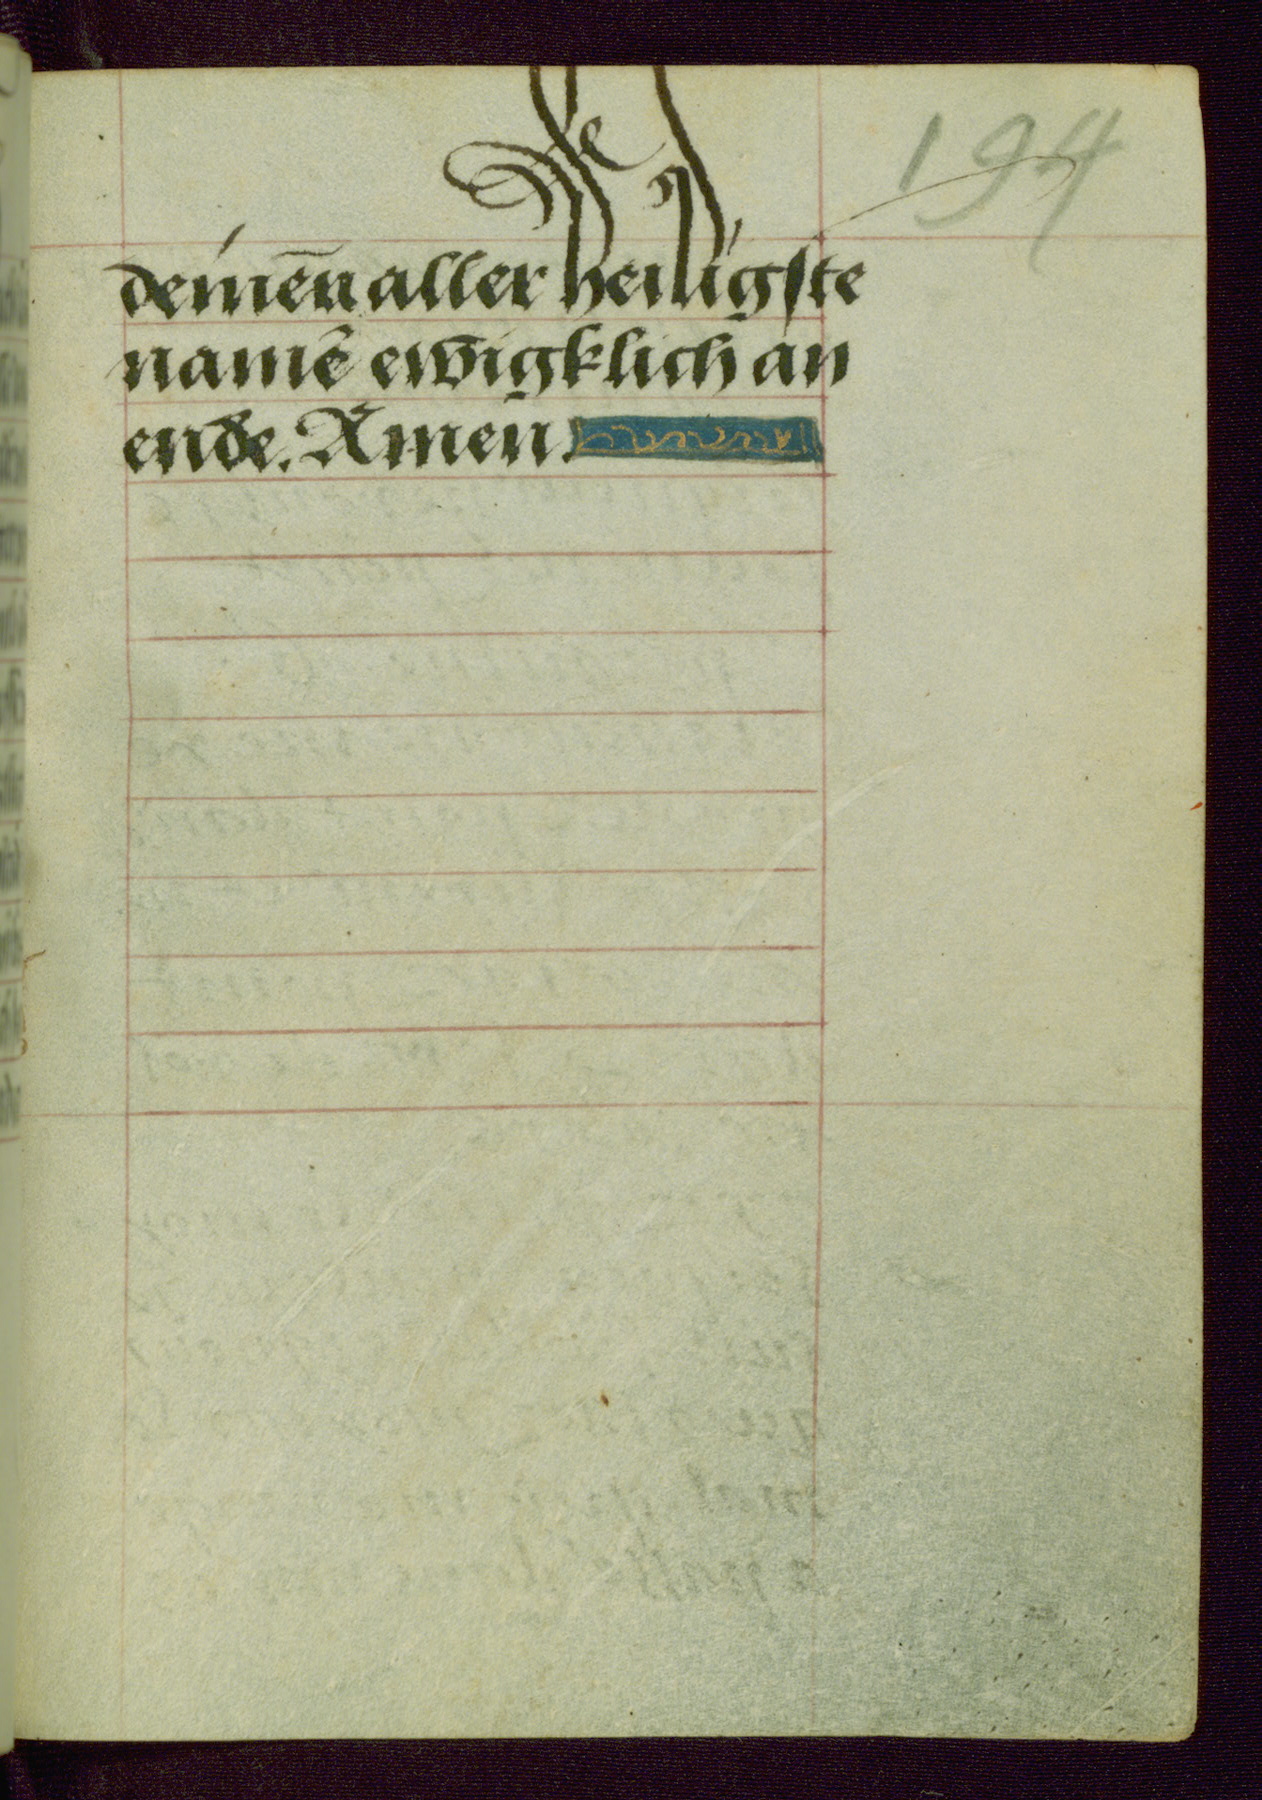 194
deinen̄ aller heiligste
namē ewigklich an
ende. Amen.